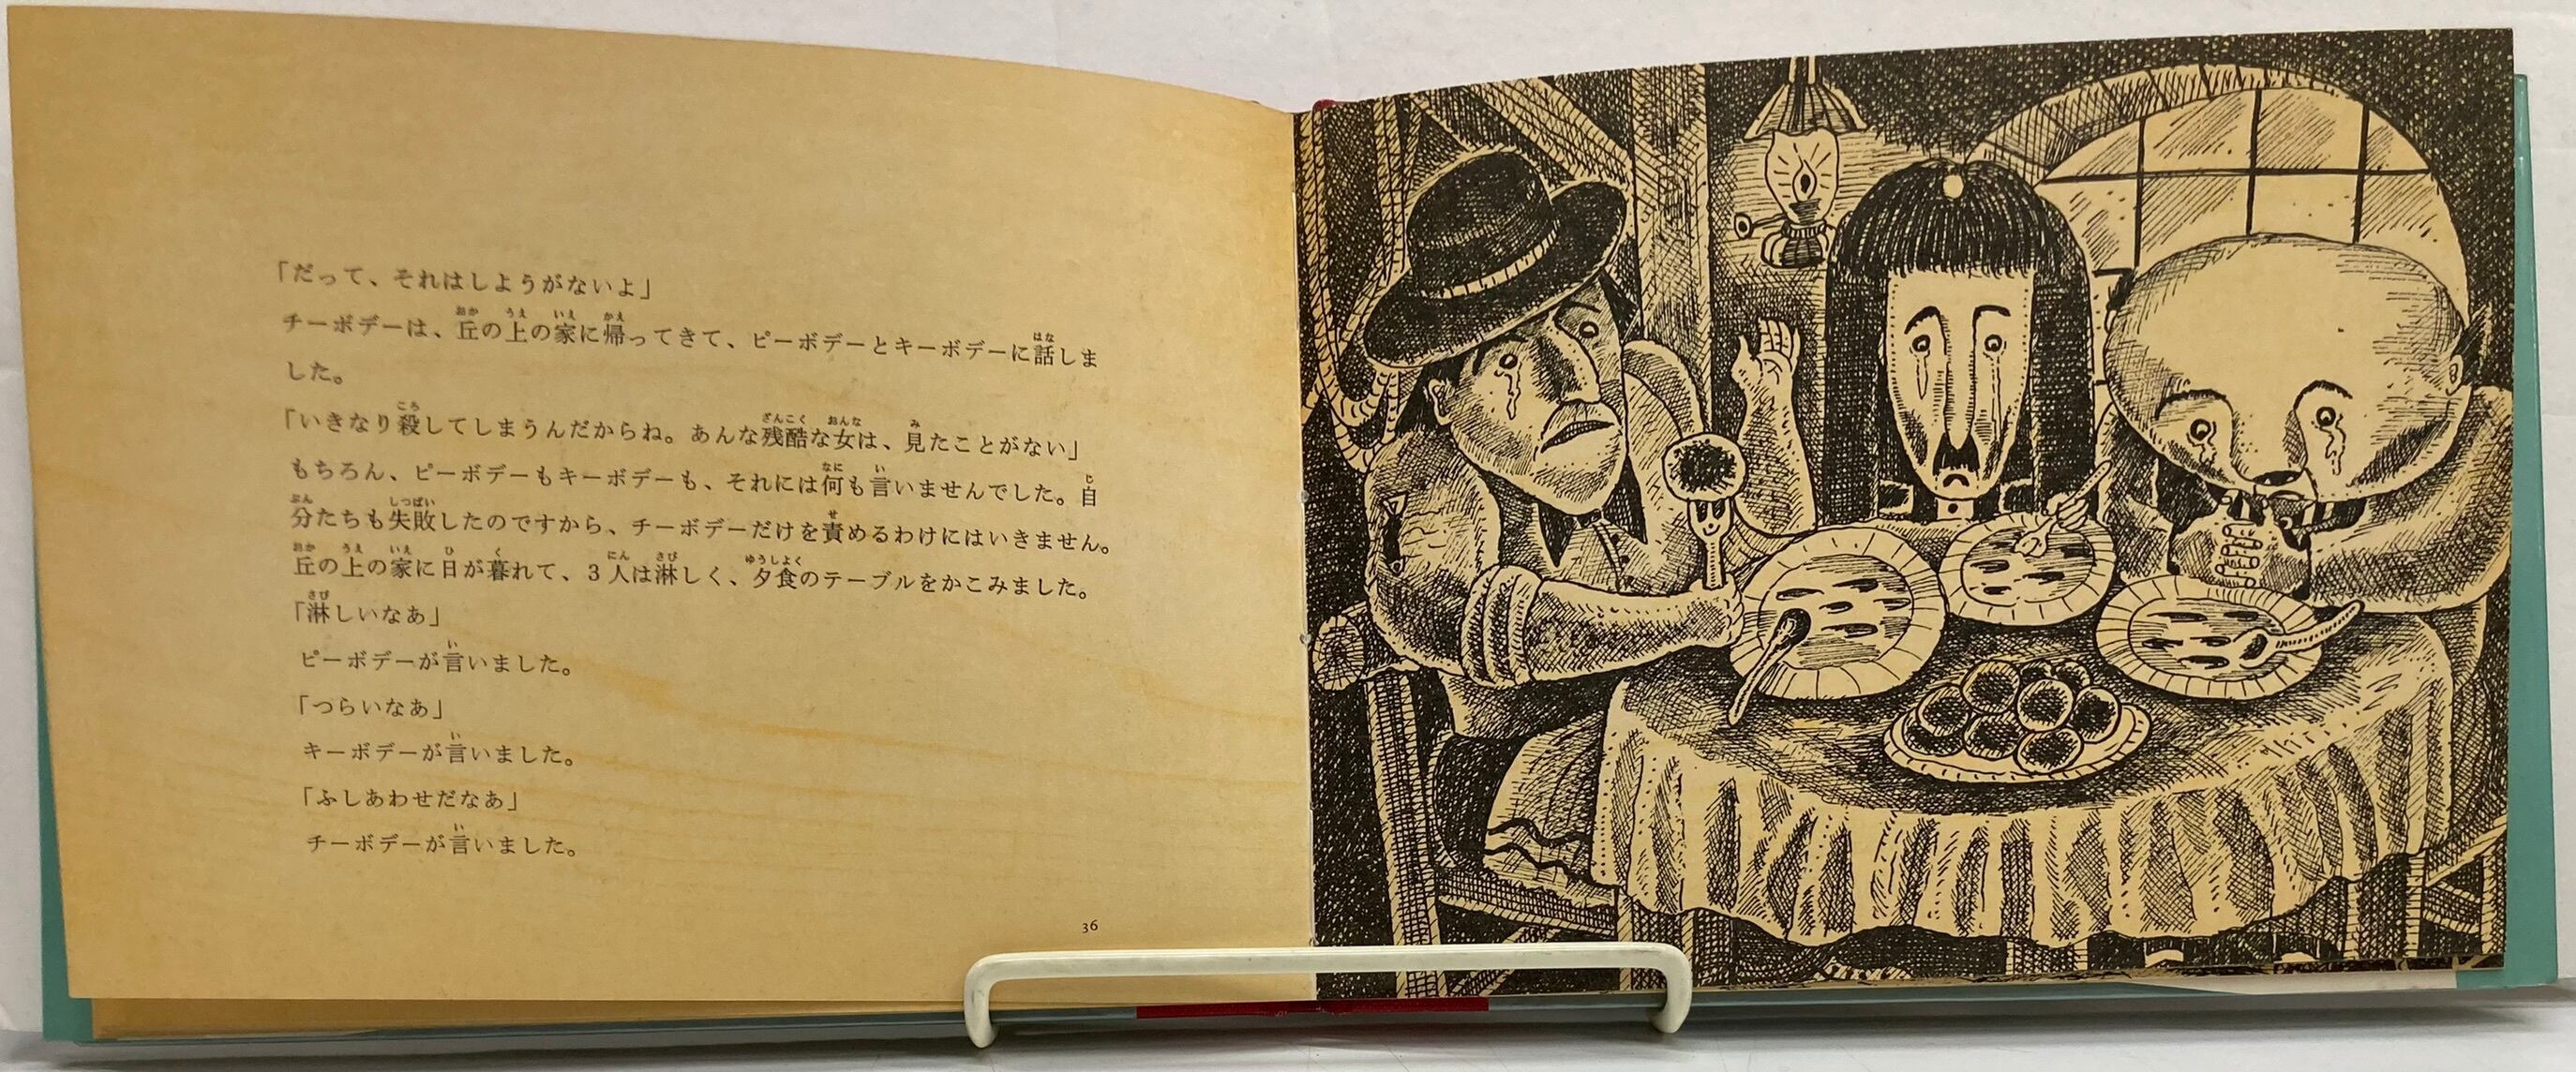 「だって、それはしようがないよ」
チーボデーは、丘の上の家に帰ってきて、ピーボデーとキーボデーに話しま
した。
「いきなり殺してしまうんだからね。あんな残酷な女は、見たことがない」
もちろん、ピーボデーもキーボデーも、それには何も言いませんでした。自
分たちも失敗したのですから、チーボデーだけを責めるわけにはいきません。
丘の上の家に日が暮れて、3人は淋しく、夕食のテーブルをかこみました。
「淋しいなあ」
ピーボデーが言いました。
「つらいなあ」
キーボデーが言いました。
「ふしあわせだなあ」
チーボデーが言いました。
36